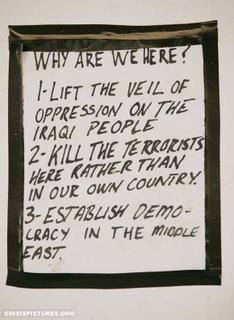 WHY ARE WE HERE?
1-LIFT THE VEIL OF
OPPRESSION ON THE
IRAQI PEOPLE
2-KILL THE TERRORISTS
HERE RATHER THAN
IN OUR OWN COUNTRY.
3-ESTABLISH DEMO-
CRACY IN THE MIDDLE
EAST.
CRISISPICTURES.ORG